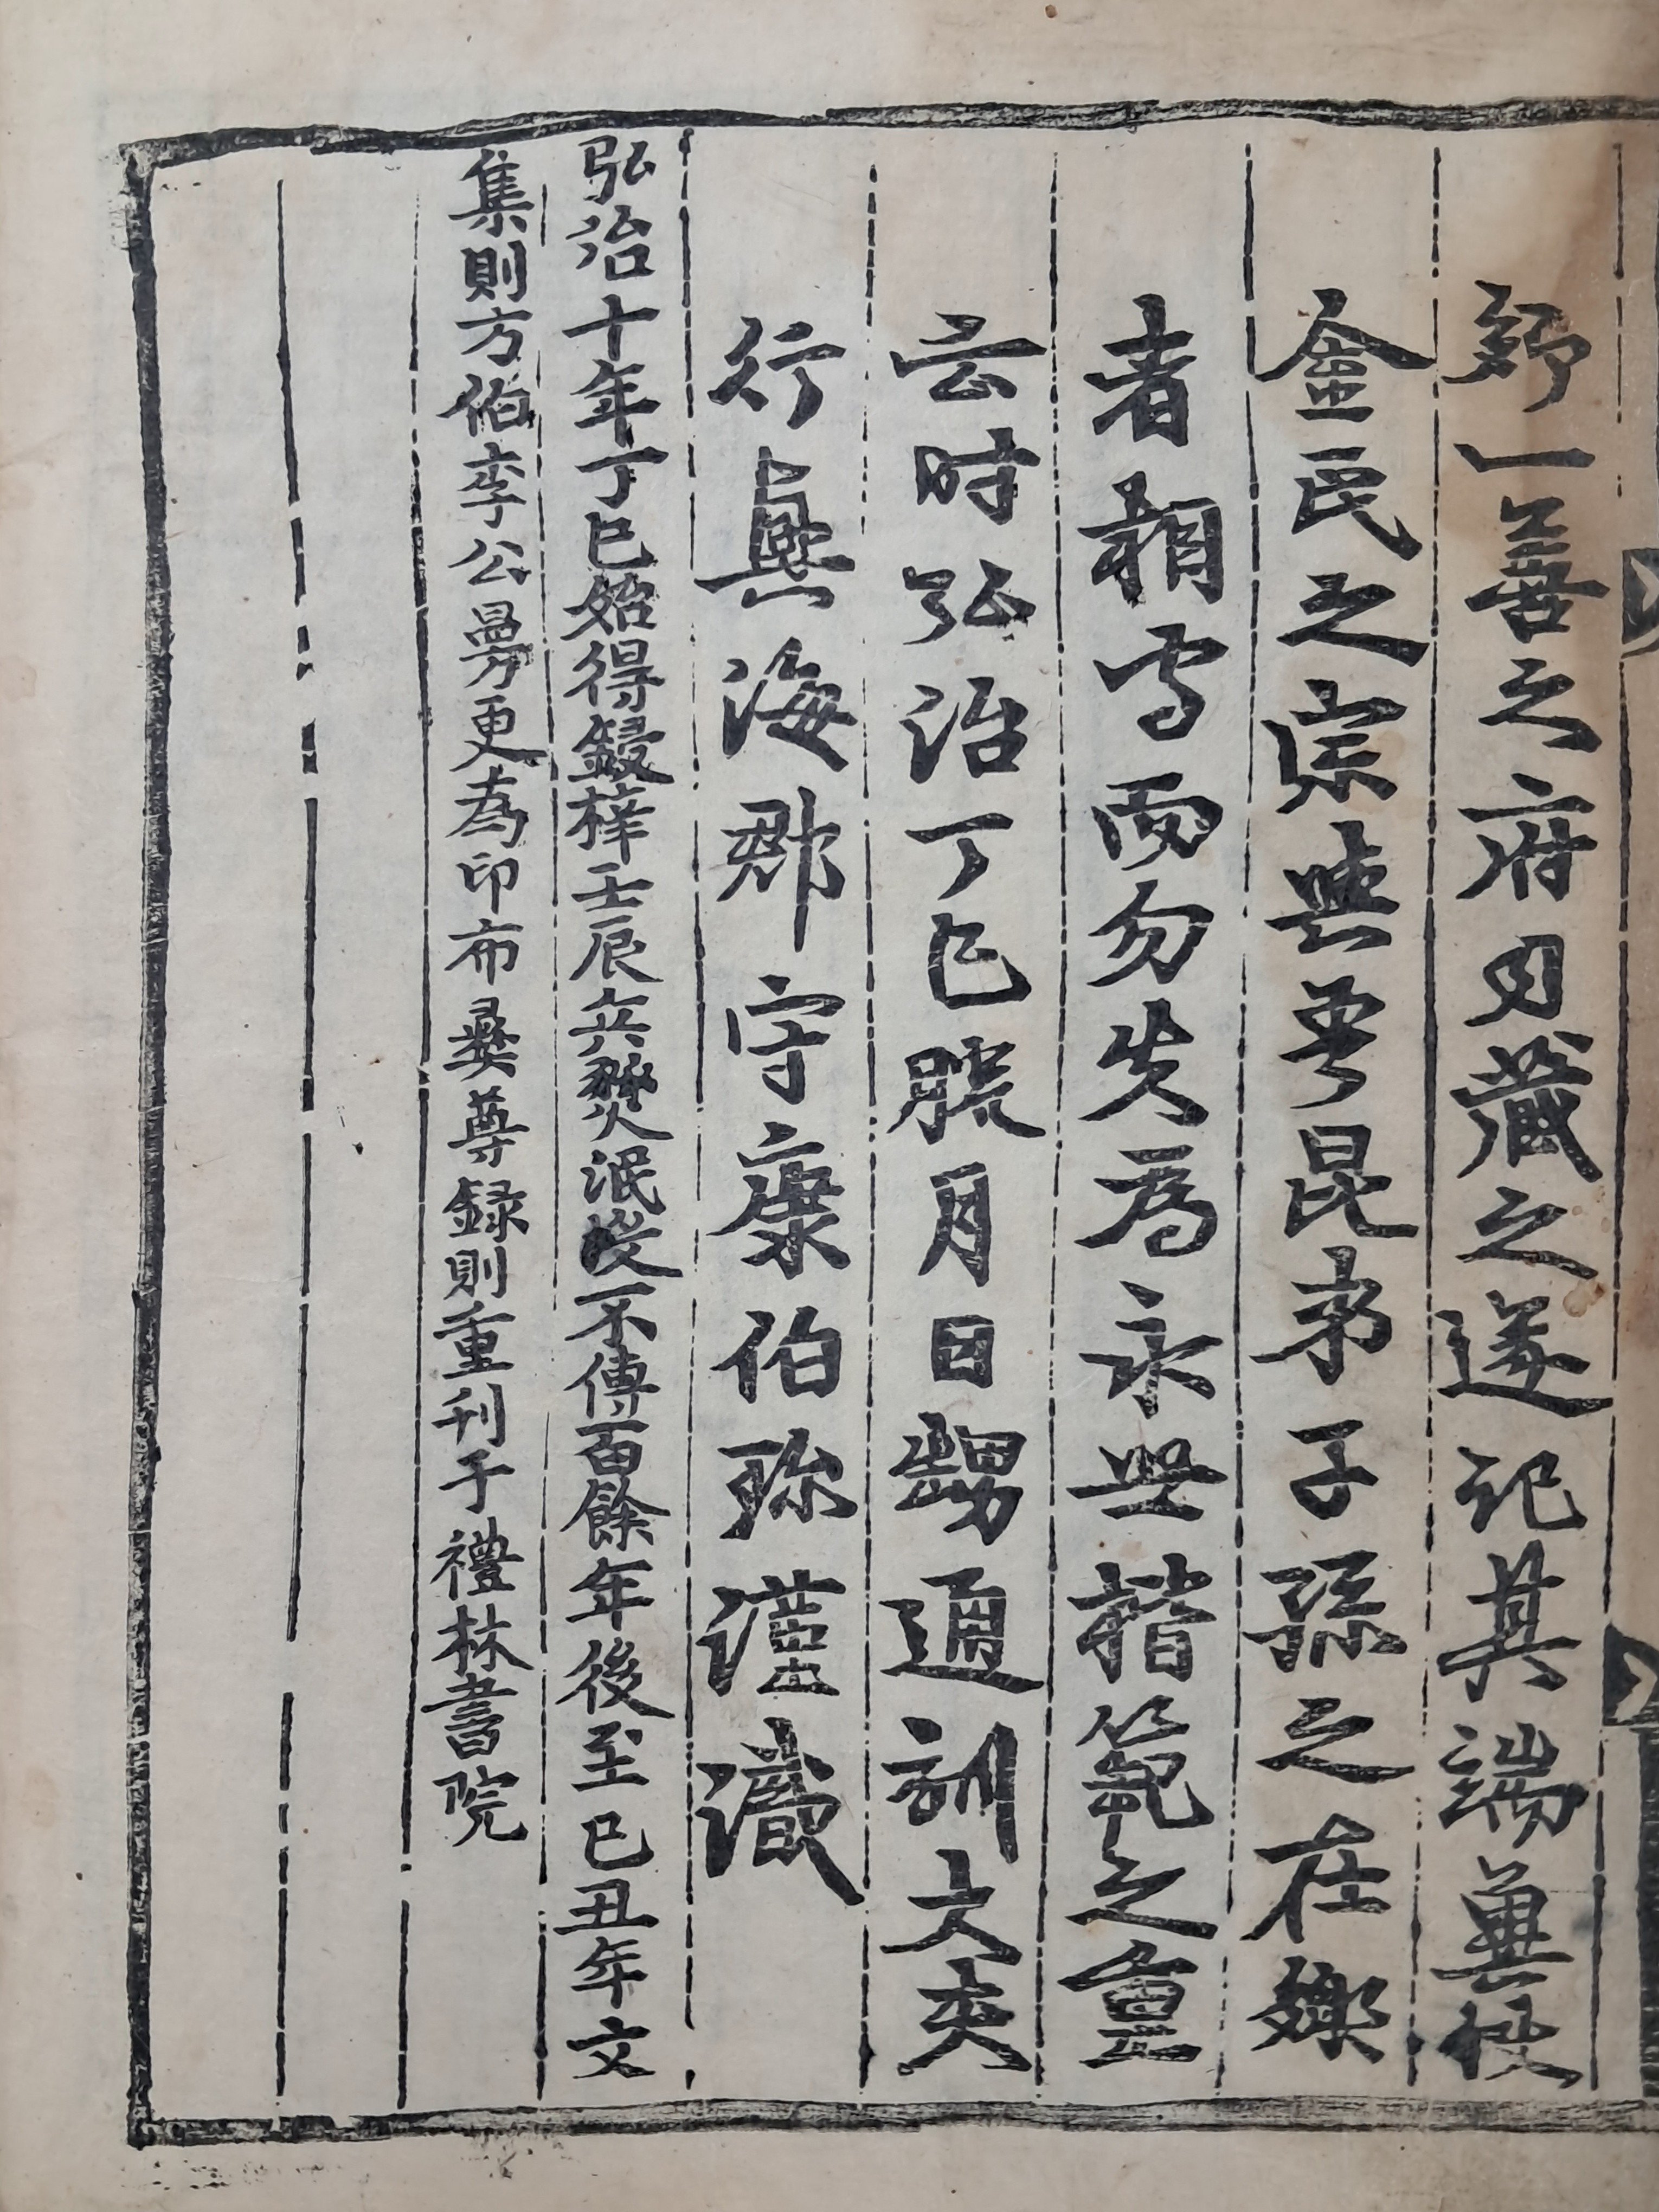 一善之府藏之遂記其端兼授
金氏之宗與予昆弟子孫之在
者相守而勿失爲永世楷範之重
云時弘治丁巳臘月日甥通訓大夫
行興海郡守康伯珎謹識
弘治十年丁巳始得鋟梓壬辰兵燹泯沒不傳百餘年後至己丑年文
集則方伯李公曼更爲印布彛尊録則重刊于禮林書院